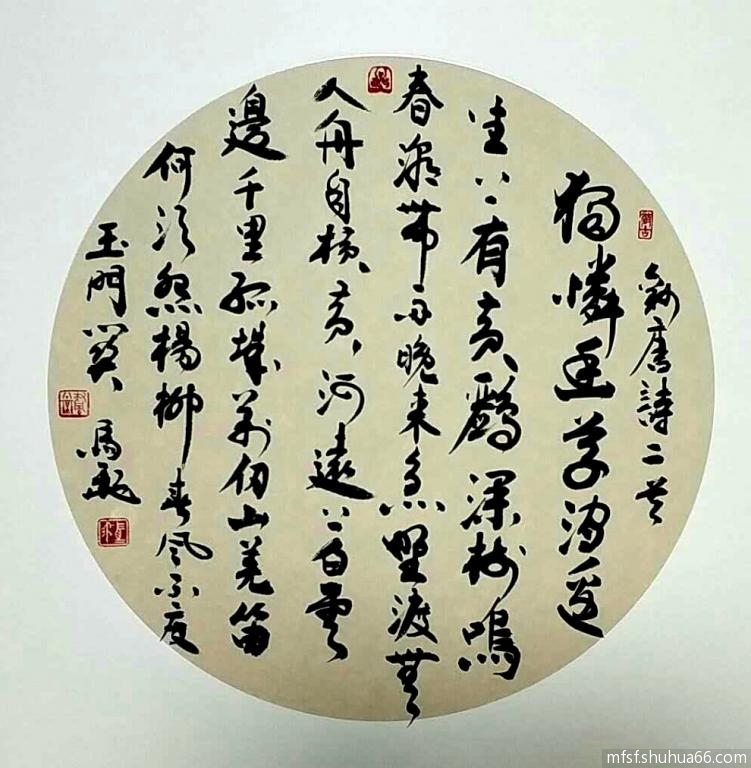 唐詩二首
獨憐幽草澗邊
生上有黄鸝深樹鳴
春潮帶雨晚來急野渡無
人舟自横黄河遠上白雲
邊千里孤城萬仞山羌笛
何須怨楊柳春風不度
玉門關
馬
mfsf.shuhua66.com